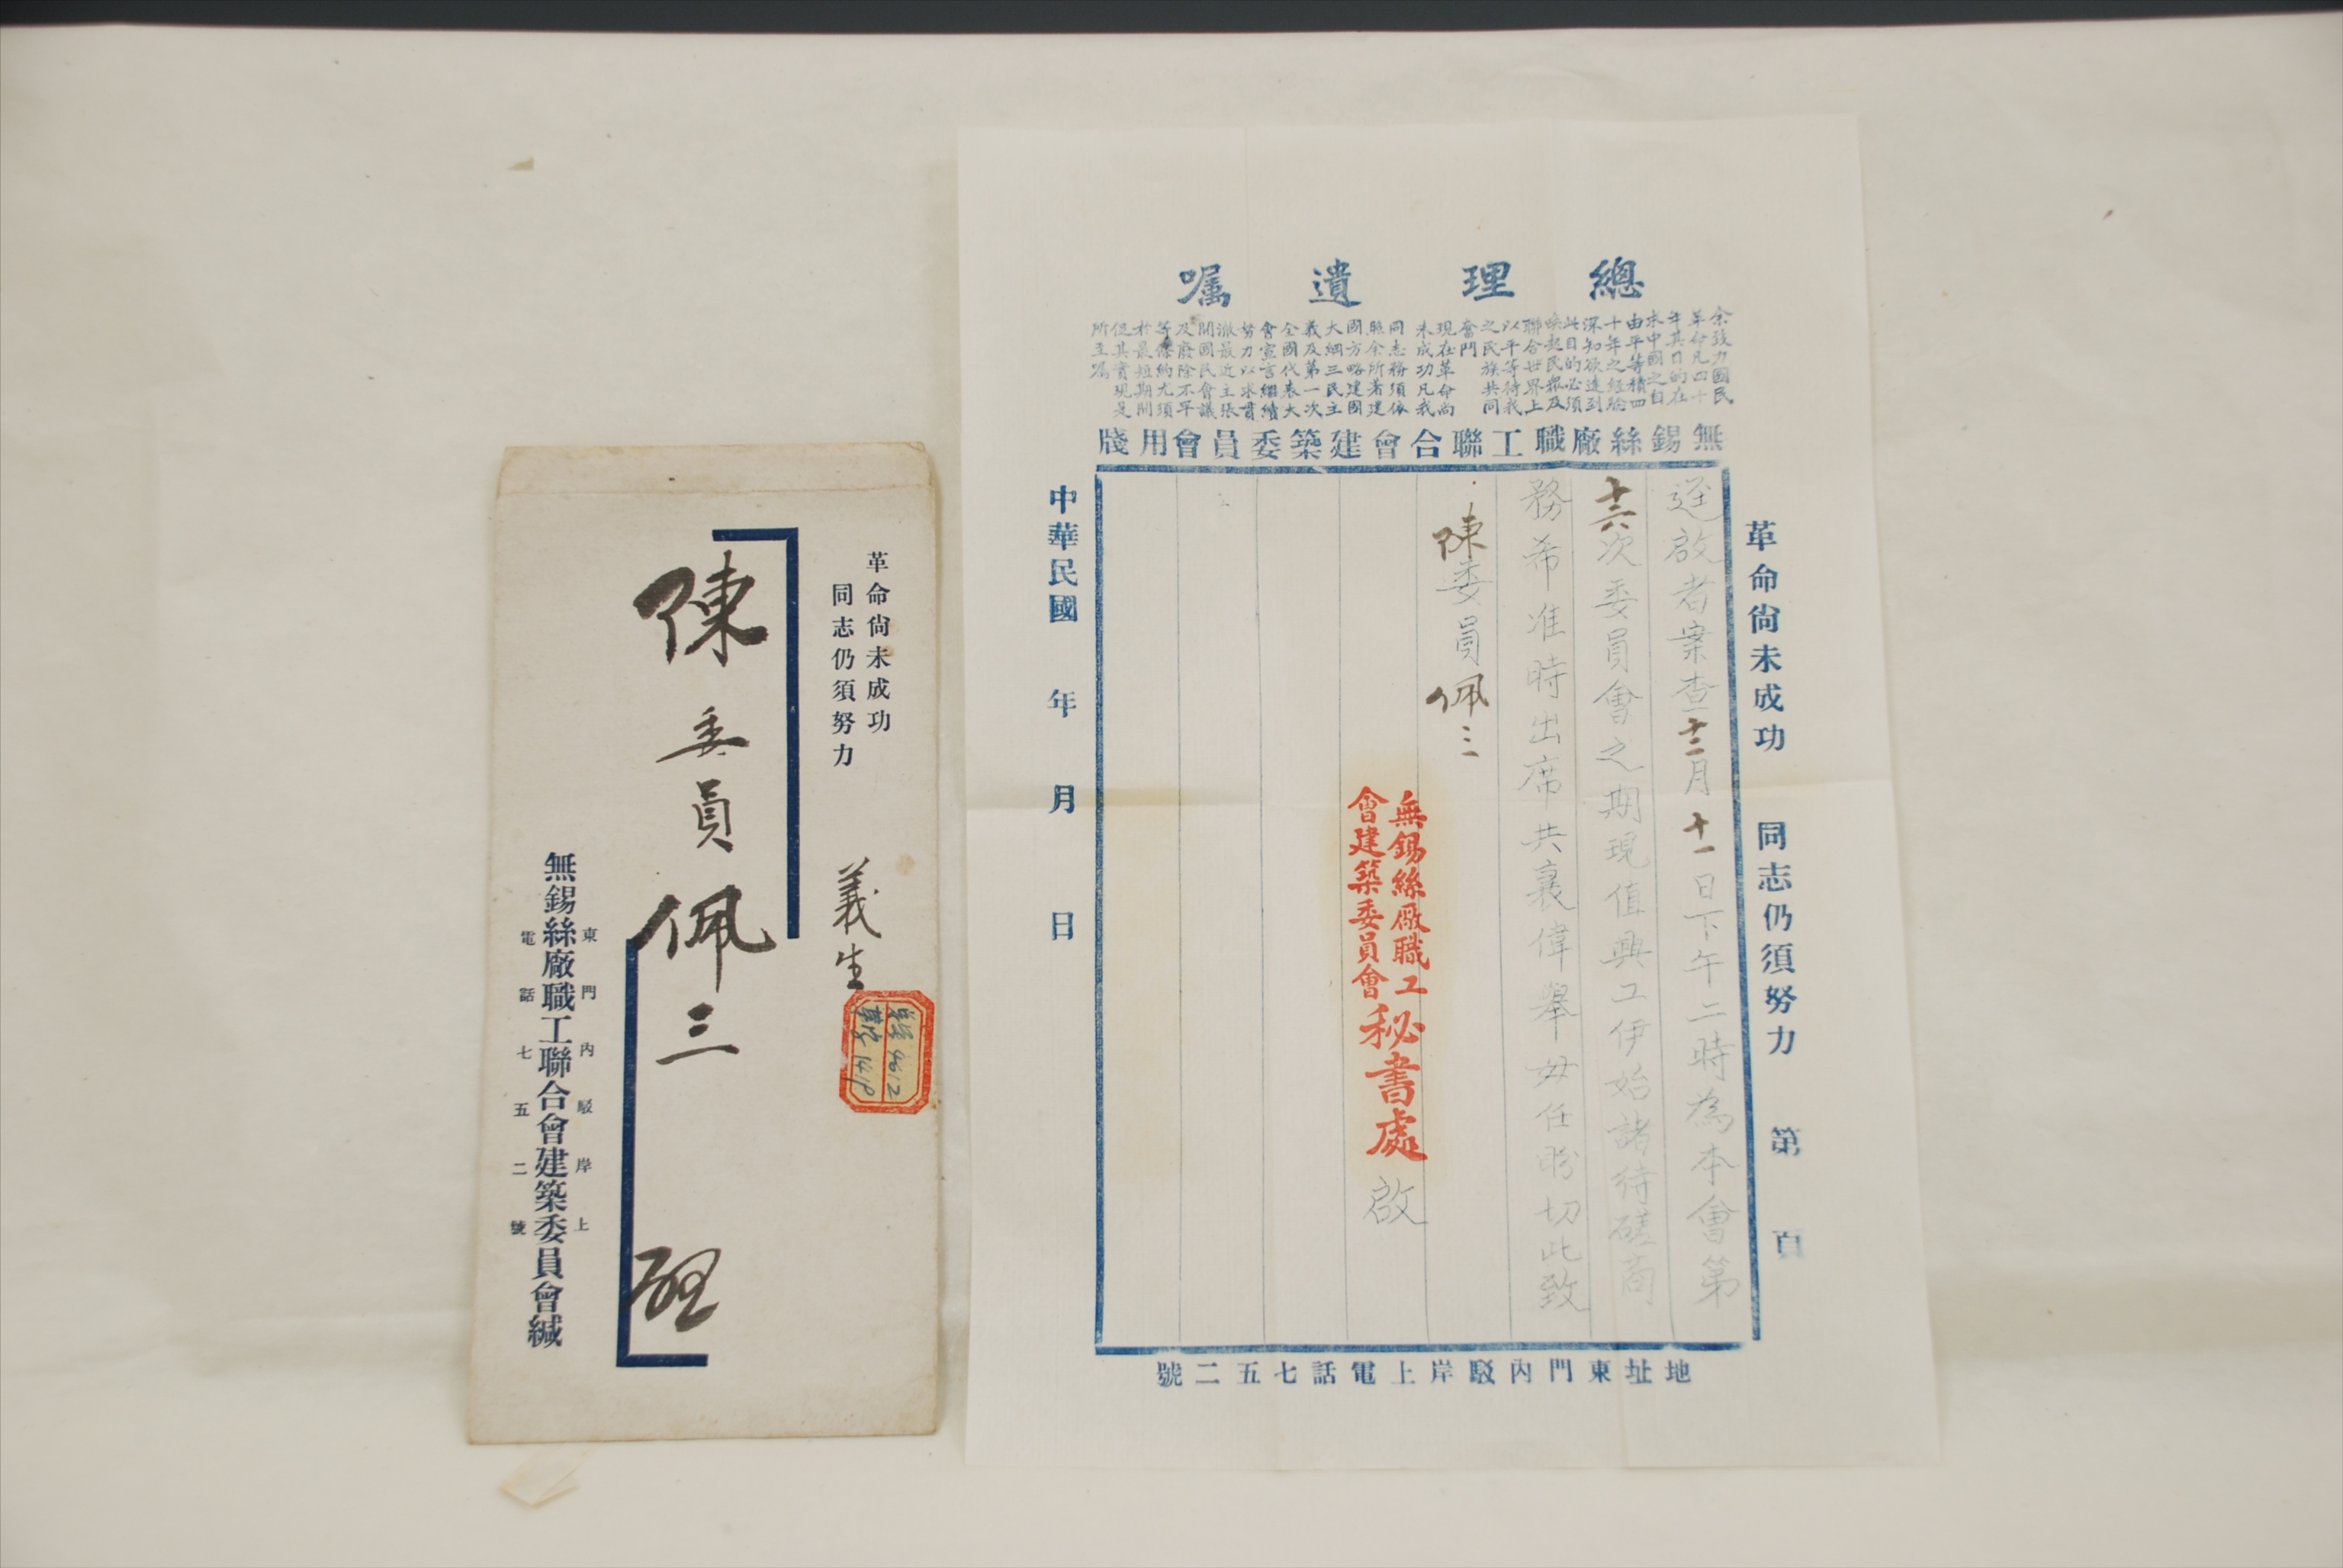 革命尚未成功
同志仍須努力
義生
陳委員佩三
啓
東門內駁岸上
無錫絲廠職工聯合會建築委員會緘
電話七五二號
總理遺囑
余致力國民
革命凡四十
年其目的在
求中國之自
由平等積四
十年之經驗
深知欲達到
此目的必須
喚起民眾及
聯合世界上
以平等待我
之民族共同
奮鬥
現在革命尚
未成功凡我
同志務須依
照余所著建
國方略建國
大綱三民主
義及第一次
全國代表大
會宣言繼續
努力以求貫
澈最近主張
開國民會議
及廢除不平
等條約尤須
於最短期間
促其實現是
所至囑
無錫絲廠職工聯合會建築委員會用牋
革命尚未成功 同志仍須努力 第 頁
逕啟者案查十二月十一日下午二時為本會第
十六次委員會之期現值興工伊始諸待磋商
務希准時出席共襄偉舉毋任盼切此致
陳委員佩三
無錫絲廠職工
會建築委員會
秘書處啟
中華民國 年 月 日
地址東門內駁岸上電話七五二號